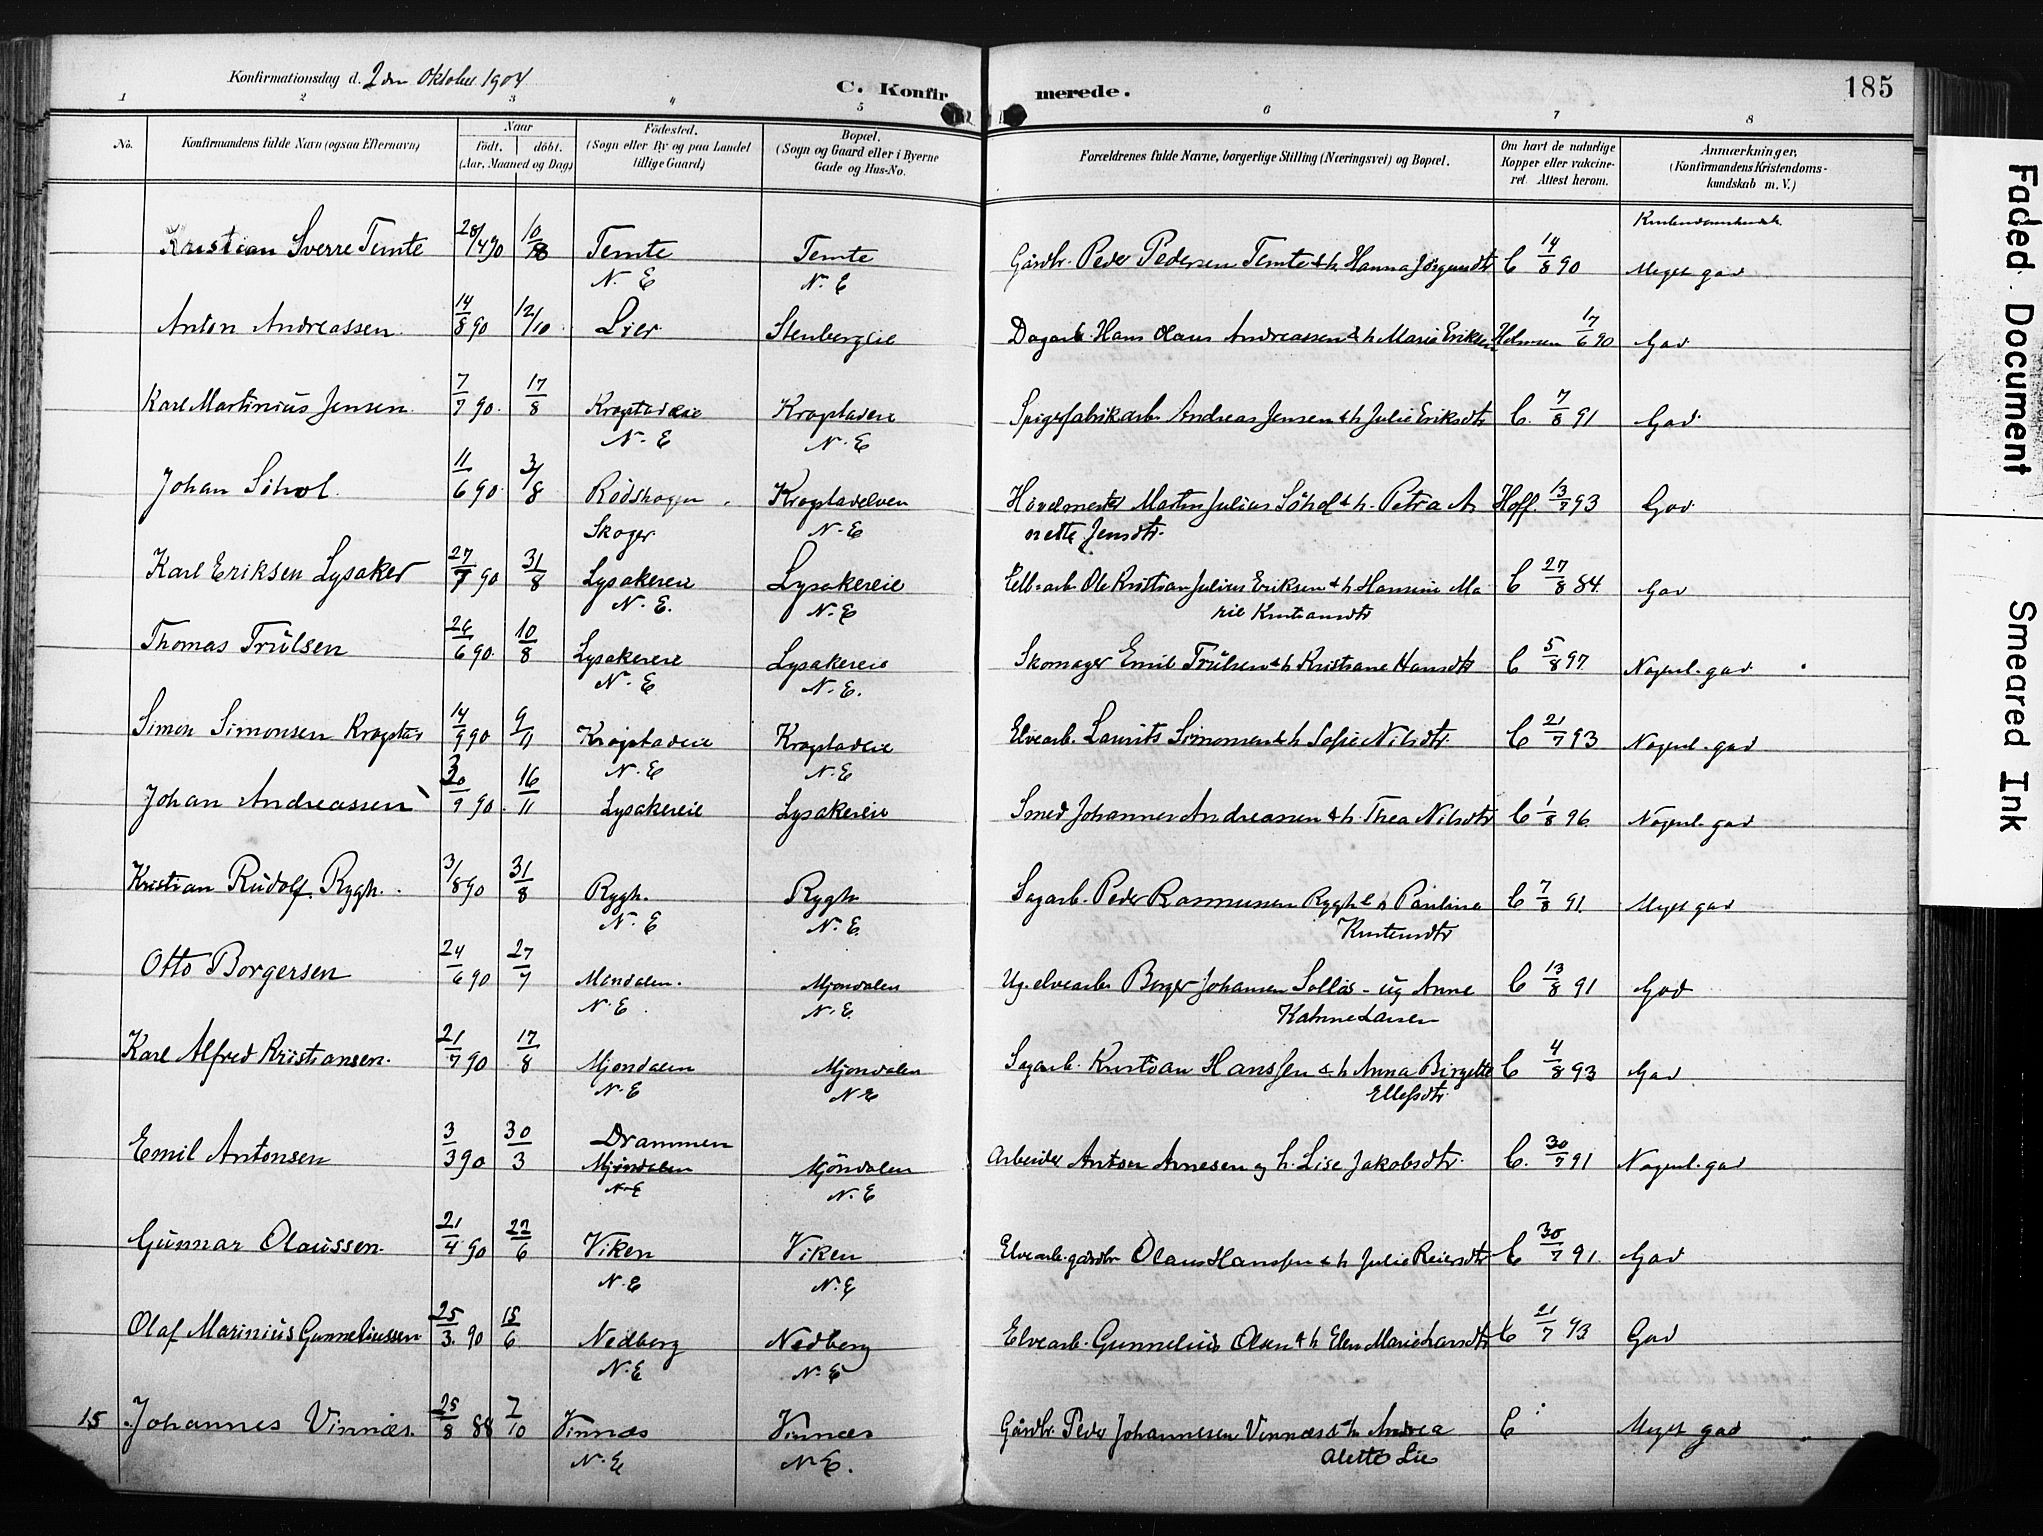 Konfirmationsdag d. 2den Oktober 1904
C. Konfirmerede.
185
1 2 3 4 5 6 7 8
No.
Konfirmandens fulde Navn (ogsaa Efternavn)
Naar
født. døbt.
(Aar, Maaned og Dag)
Fødested.
(Sogn eller By og paa Landet
tillige Gaard)
Bopæl.
(Sogn og Gaard eller i Byerne
Gade og Hus-No.
Forældrenes fulde Navne, borgerlige Stilling (Næringsvei) og Bopæl.
Om havt de naturlige
Kopper eller vakcine-
ret. Attest herom.
Anmærkninger,
(Konfirmandens Kristendoms-
kundskab m. V.)
Kristian Sverre Temte 28/4 90 10/8 Temte Temte Gårdbr. Peder Pedersen Temte & h. Hanna Jörgensdtr C 14/8 90 Meget god
N. E N. E
Anton Andreassen 14/8 90 12/10 Lier Stenbergeie Dagarb. Hans Olaus Andreassen & h Marie Eriksen Holmsen 17/6 90 God
Karl Martinius Jensen 7/7 90 17/8 Krogstadeie Krogstadeie Spigerfabrikarb. Andreas Jensen & h Julie Eriksdtr C. 7/8 91 God
N. E N. E
Johan Söhol 11/6 90 3/8 Rödskogen Krogstadelven Hövelmester Martin Julius Söhol & h. Petra A Hoff. 13/7 93 God
Skoger N. E nette Jensdtr.
Karl Eriksen Lysaker 27/7 90 31/8 Lysakereie Lysakereie Ole Kristian Julius Eriksen & h Hansine Ma C 27/8 84 God
N. E. N. E rie Kristiansdtr
Thomas Trulsen 26/6 90 10/8 Lysakereie Lysakereie Skomager Emil Trulsen & h Kristiane Hansdtr C 5/8 97 Nogenl. god
N. E N. E.
Simon Simonsen Krogstad 14/9 90 9/11 Krogstadeie Krogstadeie Elvearb. Laurits Simonsen & h Sofie Nilsdtr. C 21/7 93 Nogenl. god
N. E N. E
Johan Andreassen /9 90 16/11 Lysakereie Lysakereie Smed Johannes Andreassen & h. Thea Nilsdtr C 1/8 96 Nogenl. god
Kristian Rudolf Rygh. 3/8 90 31/8 Rygh. Rygh Sagarb. Peder Rasmussen Rygh & h Pauline C 7/8 91. Meget god
N. E N. E. Kristensdtr
Otto Borgersen 24/6 90 27/7 Möndalen. Mjöndalen Ug. elvearb. Borger Johansen Sollös - ug Anne C 13/8 91 God
N. E. N. E. Katrine Larsen
Karl Alfred Kristiansen. 21/7 90 17/8 Mjöndalen Mjöndalen Sagarb. Kristian Hanssen & h Anna Birgette C 4/8 93 God
N. E N E Ellefsdtr
Drammen
Emil Antonsen 3/3 90 30/3 Mjöndalen Mjöndalen Arbeider Anton Arnesen og h. Lise Jakobsdtr. C. 30/7 91 Nogenl. god
N. E N. E
Gunnar Olaussen. 21/4 90 22/6 Viken Viken Elvearb. gårdbr Olaus Hanssen & h Julie Reiersdtr C 30/7 91. God
N. E N. E
Olaf Marinius Gunneliussen 25/3 90 15/6 Nedberg Nedberg Elvearb. Gunnelius Olsen & h Elen Marie Larsdtr C 21/7 93 God
N. E N. E
15 Johannes Vinnæs. 25/8 88 7/10 Vinnæs Vinnæs Gårdbr. Peder Johannesen Vinnæs & h Andrea C Meget god
N. E N. E. Alette Lie
Faded Document
Smeared Ink